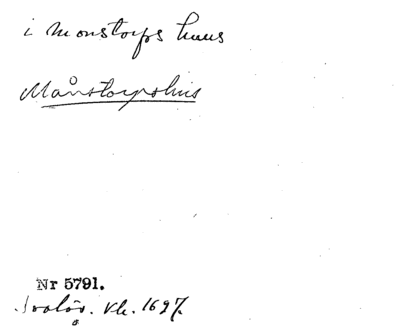 i Monstorps huus
Månstorpshus
Nr 5791.
Svalöv. Kb. 1697.